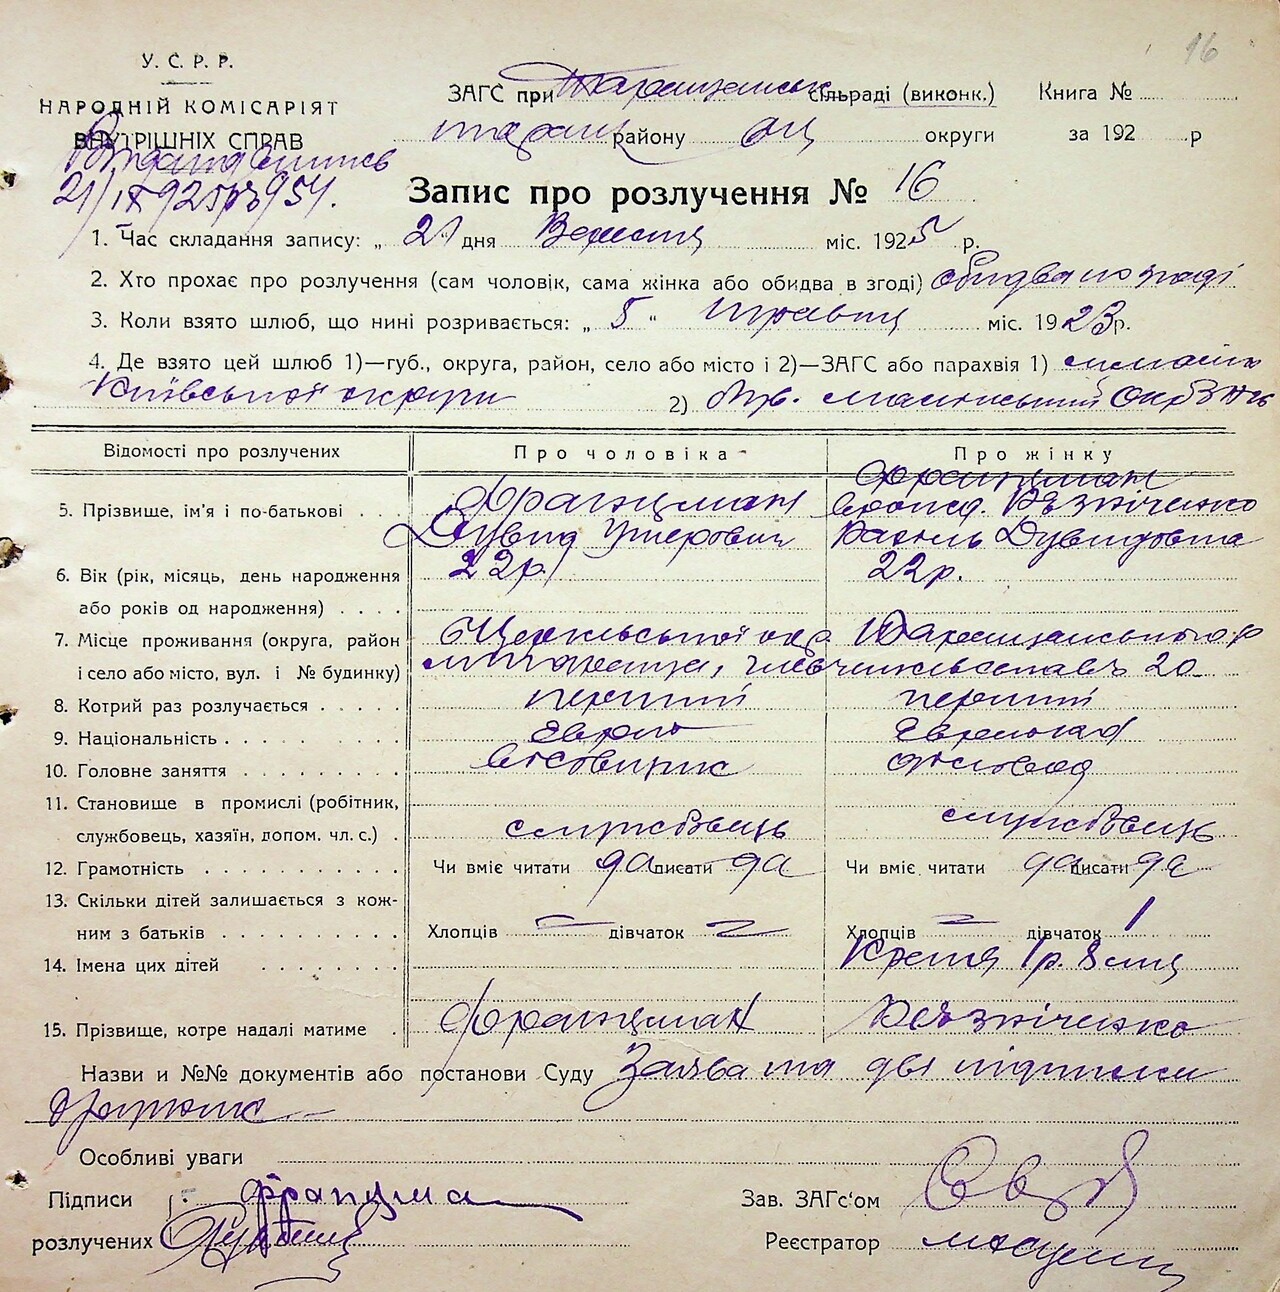 16
У. С. Р. Р.
НАРОДНІЙ КОМІСАРІЯТ
ВНУТРІШНІХ СПРАВ
21/IX 925р
ЗАГС при Таращанськ сільраді (виконк.) Книга №
таращ району округи за 192 р
Запис про розлучення № 16
1. Час складання запису: „ 21 " дня Вересня міс. 1925 р.
2. Хто прохає про розлучення (сам чоловік, сама жінка або обидва в згоді) обидва по згоді
3. Коли взято шлюб, що нині розривається: „ 5 " травня міс. 1923р.
4. Де взято цей шлюб 1)—губ., округа, район, село або місто і 2)—ЗАГС або парахвія 1)
Київської округи 2)
Відомості про розлучених Про чоловіка Про жінку
Францман
5. Прізвище, ім'я і по-батькові Францман Рєзніченко
Дувид Ушерович Рахиль Дувидовна
6. Вік (рік, місяць, день народження 22р. 22р.
або років од народження)
7. Місце проживання (округа, район Таращанського р
і село або місто, вул. і № будинку) 20
8. Котрий раз розлучається перший перший
9. Національність Еврей Еврейка
10. Головне заняття
11. Становище в промислі (робітник,
службовець, хазяїн, допом. чл. с.) службовець службовець
12. Грамотність Чи вміє читати да писати да Чи вміє читати да писати да
13. Скільки дітей залишається з кож-
ним з батьків Хлопців — дівчаток — Хлопців — дівчаток 1
14. Імена цих дітей 1р. 8 міс
15. Прізвище, котре надалі матиме Францман Рєзніченко
Назви и №№ документів або постанови Суду Заява та дві підписки
Особливі уваги
Підписи Францма
розлучених
Зав. ЗАГс'ом
Реєстратор